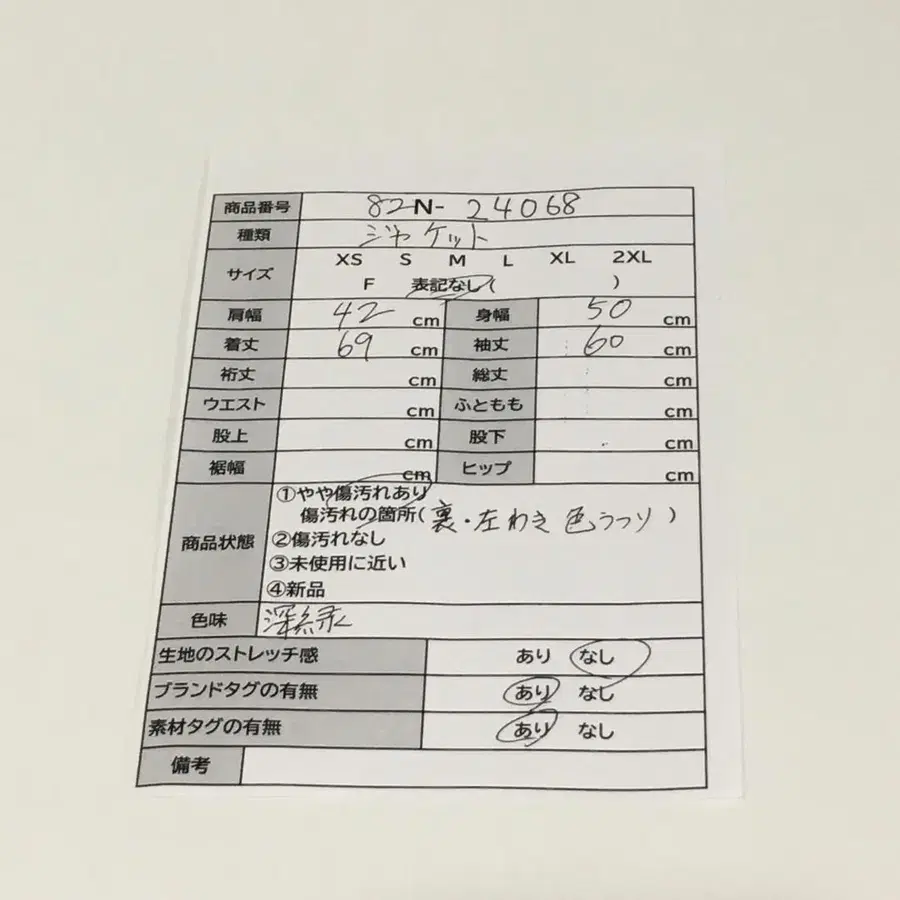 商品番号 82N-24068
種類 ジャケット
サイズ XS S M L XL 2XL
F 表記なし( )
肩幅 42 cm 身幅 50 cm
着丈 69 cm 袖丈 60 cm
裄丈 cm 総丈 cm
ウエスト cm ふともも cm
股上 cm 股下 cm
裾幅 cm ヒップ cm
商品状態 ①やや傷汚れあり
傷汚れの箇所(裏・左わき 色うつり)
②傷汚れなし
③未使用に近い
④新品
色味 深緑
生地のストレッチ感 あり なし
ブランドタグの有無 あり なし
素材タグの有無 あり なし
備考